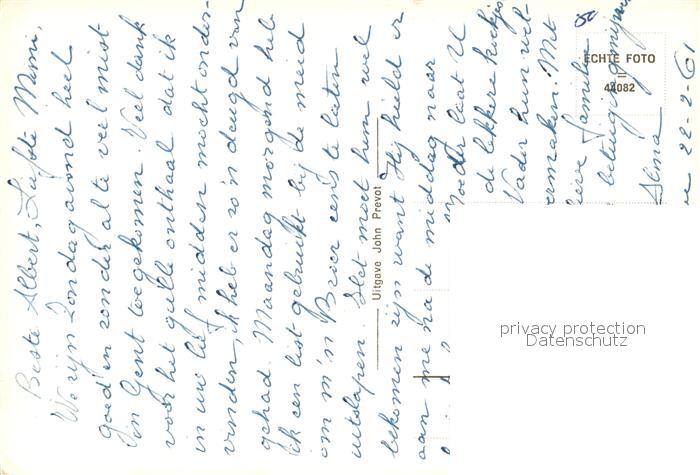 Beste Albert, Liefste Mimi,
We zijn Zondagavond heel
goed en zonder al te veel mist
in Gent toegekomen. Veel dank
voor het gulle onthaal dat ik
in uw lief midden mocht onder-
vinden, ik heb er zo'n deugd van
gehad. Maandag morgend heb
ik een list gebruikt bij de meid
om m'n Broer eens te laten
uitslapen. Het moet hem wel
bekomen zijn want Hij hield er
aan me na de middag naar
Moeder laat U
de lekkere
Vader hun wel-
Met
lieve Familie
Alma
Uitgave John Prevot
ECHTE FOTO
44082
privacy protection
Datenschutz